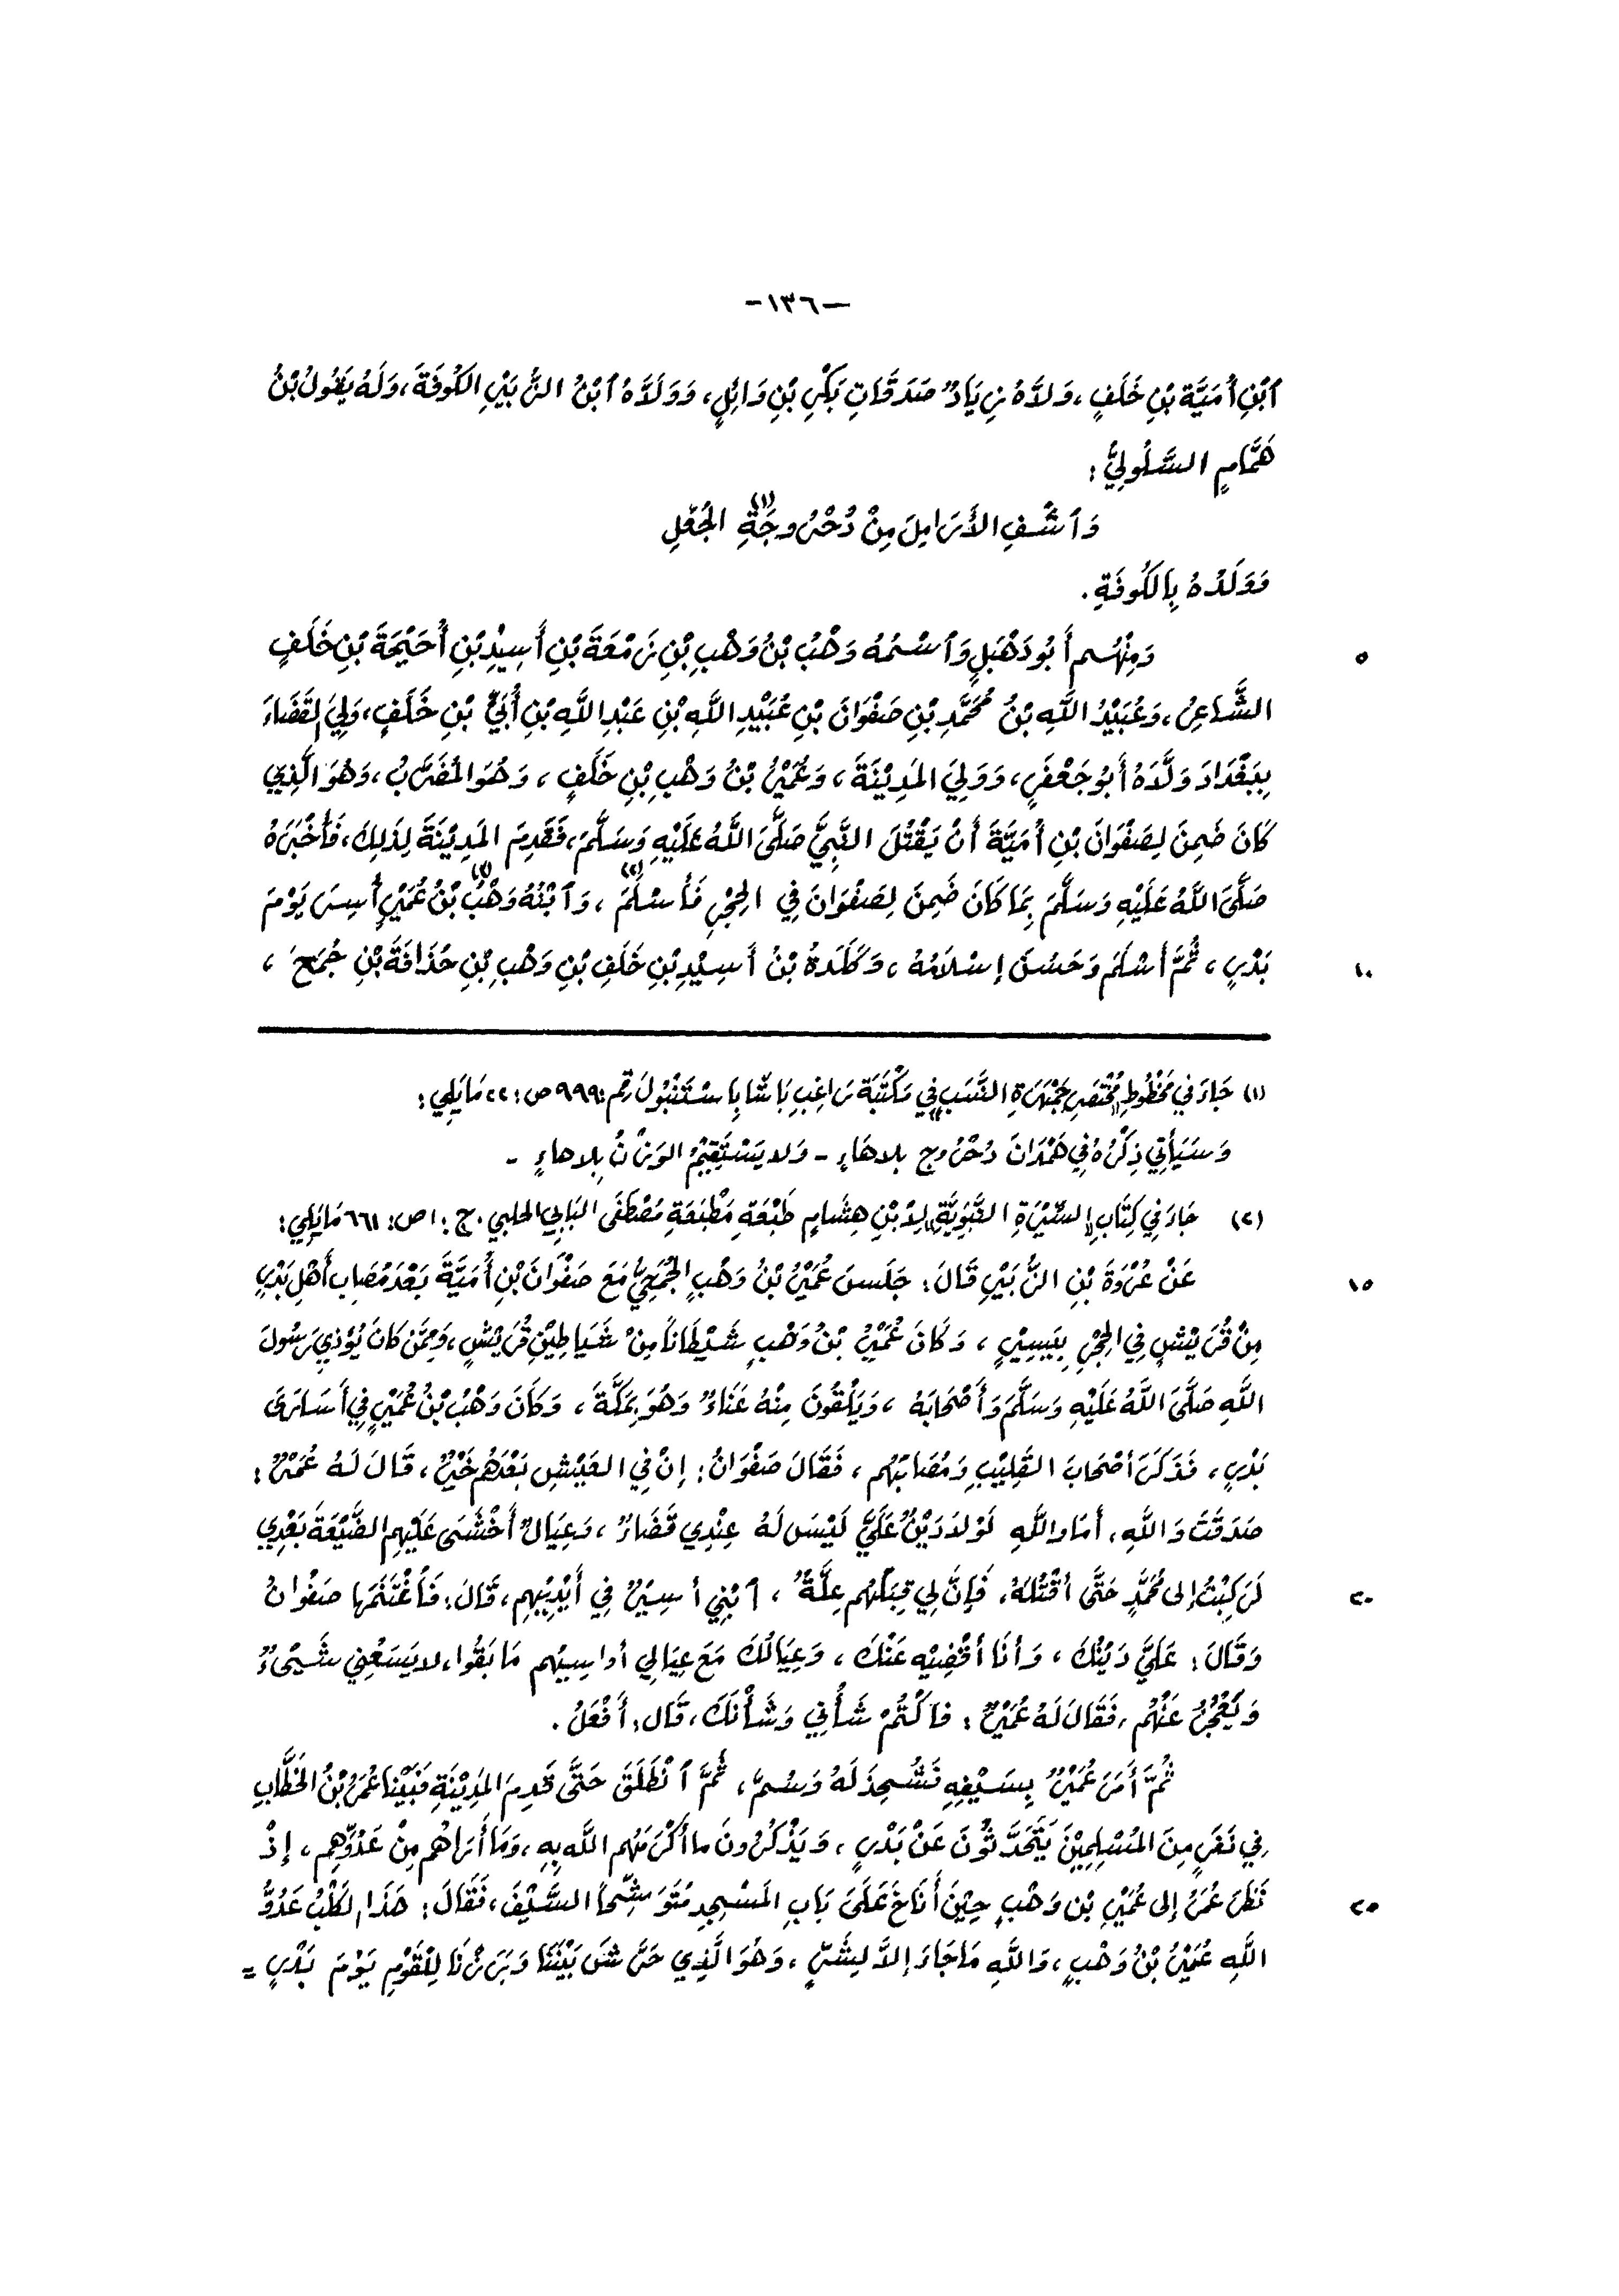 -١٣٦-
ٱبْنِ أُمَيَّةَ بْنِ خَلَفٍ، وَلاَّهُ زِيَادٌ صَدَقَاتِ بَكْرِ بْنِ وَائِلٍ، وَوَلاَّهُ ٱبْنُ الزُّبَيْرِ الكُوفَةَ، وَلَهُ يَقُولُ بْنُ
هَمَّامٍ السَّلُولِيُّ:
وَٱشْفِ الأَرَامِلَ مِنْ دُحْرُوجَةِ (١) الجُعَلِ
وَوَلَدُهُ بِالكُوفَةِ.
٥ وَمِنْهُم أَبُو دَهْبَلٍ وَٱسْمُهُ وَهْبُ بْنُ وَهْبِ بْنِ زَمْعَةَ بْنِ أَسِيْدِ بْنِ أُحَيْحَةَ بْنِ خَلَفٍ
الشَّاعِرُ، وَعُبَيْدُ اللَّهِ بْنُ مُحَمَّدِ بْنِ صَفْوَانَ بْنِ عُبَيْدِ اللَّهِ بْنِ عَبْدِ اللَّهِ بْنِ أُبَيٍّ بْنِ خَلَفٍ، وَلِيَ القَضَاءَ
بِبَغْدَادَ وَلَّاهُ أَبُو جَعْفَرٍ، وَوَلِيَ المَدِيْنَةَ، وَعُمَيْرُ بْنُ وَهْبِ بْنِ خَلَفٍ، وَهُوَ المُضَرِّبُ، وَهُوَ الَّذِي
كَانَ ضَمِنَ لِصَفْوَانَ بْنِ أُمَيَّةَ أَنْ يَقْتُلَ النَّبِيَّ صَلَّى اللَّهُ عَلَيْهِ وَسَلَّمَ، فَقَدِمَ المَدِيْنَةَ لِذَلِكَ، فَأَخْبَرَهُ
صَلَّى اللَّهُ عَلَيْهِ وَسَلَّمَ بِمَا كَانَ ضَمِنَ لِصَفْوَانَ فِي الحِجْرِ فَأَسْلَمَ (٢)، وَٱبْنُهُ وَهْبُ بْنُ عُمَيْرٍ أُسِرَ يَوْمَ
١٠ بَدْرٍ، ثُمَّ أَسْلَمَ وَحَسُنَ إِسْلاَمُهُ، وَكَلَدَةُ بْنُ أَسِيْدِ بْنِ خَلَفِ بْنِ وَهْبِ بْنِ حُذَافَةَ بْنِ جُمَحَ،
(١) جَاءَ فِي مَخْطُوطِ مُخْتَصَرِ جَمْهَرَةِ النَّسَبِ فِي مَكْتَبَةِ رَاغِبِ بَاشَا بِاسْتَنْبُولَ رقم: ٩٩٩ ص: ٢٢ مَا يَلِي:
وَسَيَأْتِي ذِكْرُهُ فِي هَمْدَانَ دُحْرُوج بلا هَاءٍ - وَلا يَسْتَقِيْمُ الوَزْنُ بِلا هاءٍ -
(٢) جَاءَ فِي كِتَابِ السِّيْرَةِ النَّبَوِيَّةِ لاِبْنِ هِشَامٍ طَبْعَةِ مَطْبَعَةِ مُصْطَفَى البَابِي الحلبي. ج: ١ ص: ٦٦١ مَا يَلِي:
١٥ عَنْ عُرْوَةَ بْنِ الزُّبَيْرِ قَالَ: جَلَسَ عُمَيْرُ بْنُ وَهْبٍ الجُمَحِيُّ مَعَ صَفْوَانَ بْنِ أُمَيَّةَ بَعْدَ مُصَابِ أَهْلِ بَدْرٍ
مِنْ قُرَيْشٍ فِي الحِجْرِ بِيَسِيْرٍ، وَكَانَ عُمَيْرُ بْنُ وَهْبٍ شَيْطَاناً مِنْ شَيَاطِيْنِ قُرَيْشٍ، وَمِمَّن كَانَ يُؤذِي رَسُولَ
اللَّهِ صَلَّى اللَّهُ عَلَيْهِ وَسَلَّمَ وَأَصْحَابَهُ، وَيَلْقُونَ مِنْهُ عَنَاءً وَهُوَ بِمَكَّةَ، وَكَانَ وَهْبُ بْنُ عُمَيْرٍ فِي أَسَارَى
بَدْرٍ، فَذَكَرَ أَصْحَابَ القَلِيْبِ وَمُصَابَهُم، فَقَالَ صَفْوَانُ: إنْ فِي العَيْشِ بَعْدَهُم خَيْرٌ، قَالَ لَهُ عُمَيْرٌ:
صَدَقْتَ وَاللَّهِ، أَمَا واللَّهِ لَوْلا دَيْنٌ عَلَيَّ لَيْسَ لَهُ عِنْدِي قَضَاءٌ، وَعِيَالٌ أَخْشَى عَلَيْهِم الضَّيْعَةَ بَعْدِي
٢٠ لَرَكِبْتُ إلى مُحَمَّدٍ حَتَّى أَقْتُلَهُ، فَإنَّ لِي قِبَلَهُم عِلَّةً، ٱبْنِي أَسِيْرٌ فِي أَيْدِيْهِم، قَالَ: فَٱغْتَنَمَهَا صَفْوَانُ
وَقَالَ: عَلَيَّ دَيْنُكَ، وَأَنَا أَقْضِيْهِ عَنْكَ، وَعِيَالُكَ مَعَ عِيَالِي أُواسِيْهُم مَا بَقُوا، لا يَسَعُنِي شَيْءٌ
وَيَعْجُزُ عَنْهُم، فَقَالَ لَهُ عُمَيْرٌ: فاكْتُمْ شَأْنِي وَشَأْنَكَ، قَالَ: أَفْعَلُ.
ثُمَّ أَمَرَ عُمَيْرٌ بِسَيْفِهِ فَشُحِذَ لَهُ وَسُمَّ، ثُمَّ ٱنْطَلَقَ حَتَّى قَدِمَ المَدِيْنَةِ فَبَيْنَا عُمَرُ بْنُ الخَطَّابِ
فِي نَفَرٍ مِنَ المُسْلِمِيْنَ يَتَحَدَّثُونَ عَنْ بَدْرٍ، وَيَذْكُرُونَ ما أَكْرَمَهُم اللَّه بِهِ، وَمَا أَرَاهُم مِنْ عَدُوِّهِم، إِذْ
٢٥ نَظَرَ عُمَرُ إلى عُمَيْرِ بْنِ وَهْبٍ حِيْنَ أَنَاخَ عَلَى بَابِ المَسْجِدِ مُتَوَشِّحاً السَّيْفَ، فَقَالَ: هَذَا الكَلْبُ عَدُوُّ
اللَّهِ عُمَيْرُ بْنُ وَهْبٍ، وَاللَّهِ مَا جَاءَ إلاَّ لِشَرٍّ، وَهُوَ الَّذِي حَرَّشَ بَيْنَنَا وَحَزَرَنَا لِلْقَوْمِ يَوْمَ بَدْرٍ =